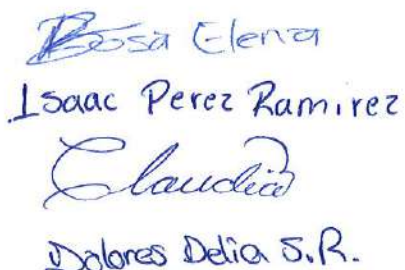 Rosa Elena
Isaac Perez Ramirez
Claudia
Dolores Delia S.R.